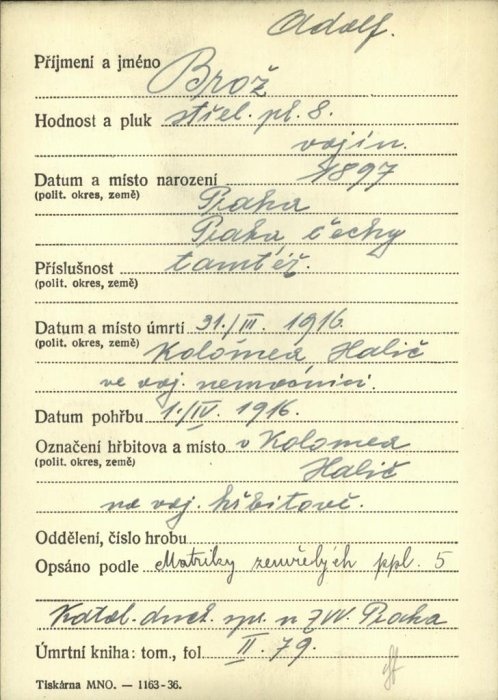 Adolf.
Příjmení a jméno Brož
Hodnost a pluk střel. pl. 8.
vojín.
Datum a místo narození 1897
(polit. okres, země) Praha
Praha, Čechy
Příslušnost tamtéž.
(polit. okres, země)
Datum a místo úmrtí 31./III. 1916.
(polit. okres, země) Kolomea Halič
ve voj. nemocnici.
Datum pohřbu 1./IV. 1916.
Označení hřbitova a místo v Kolomea
(polit. okres, země) Halič
na voj. hřbitově.
Oddělení, číslo hrobu
Opsáno podle Matriky zemřelých ppl. 5
Katol. duch. spr. u ZVV. Praha
Úmrtní kniha: tom., fol. II. 79.
Tiskárna MNO. — 1163-36.